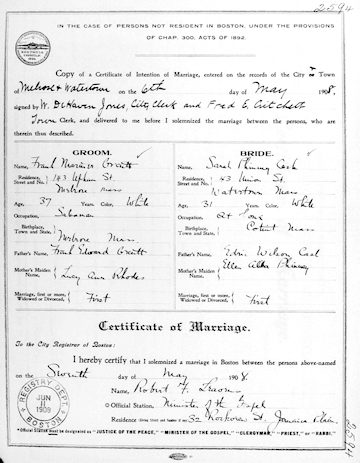 2594
IN THE CASE OF PERSONS NOT RESIDENT IN BOSTON, UNDER THE PROVISIONS
OF CHAP. 300, ACTS OF 1892.
Copy of a Certificate of Intention of Marriage, entered on the records of the City & Town
of Melrose & Watertown on the 6th day of May 1908,
signed by W. DeHaven Jones, City Clerk and Fred E. Critchett
Town Clerk, and delivered to me before I solemnized the marriage between the persons, who are
therein thus described.
GROOM.
Name, Frank
Residence, Street and No. 143 Upham St.
Melrose Mass
Age, 37 Years. Color, White
Occupation, Salesman
Birthplace, Town and State, Melrose Mass.
Father's Name, Frank Edward
Mother's Maiden Name, Lucy Ann Rhodes
Marriage, first or more, Widowed or Divorced, First
BRIDE.
Name, Sarah Phinney
Residence, Street and No. 43 Union St.
Watertown Mass
Age, 31 Years. Color, White
Occupation, At home
Birthplace, Town and State, Cotuit Mass
Father's Name, Wilson
Mother's Maiden Name, Ellen Phinney
Marriage, first or more, Widowed or Divorced, First
Certificate of Marriage.
To the City Registrar of Boston:
I hereby certify that I solemnized a marriage in Boston between the persons above-named
on the Seventh day of May 1908.
Name, Robert F.
Official Station, Minister of the Gospel
Residence 32 St. Jamaica Plain
REGISTRY DEPT.
JUN
1909
BOSTON
*Official Station must be designated as "JUSTICE OF THE PEACE," "MINISTER OF THE GOSPEL," "CLERGYMAN," "PRIEST," or "RABBI."
2594